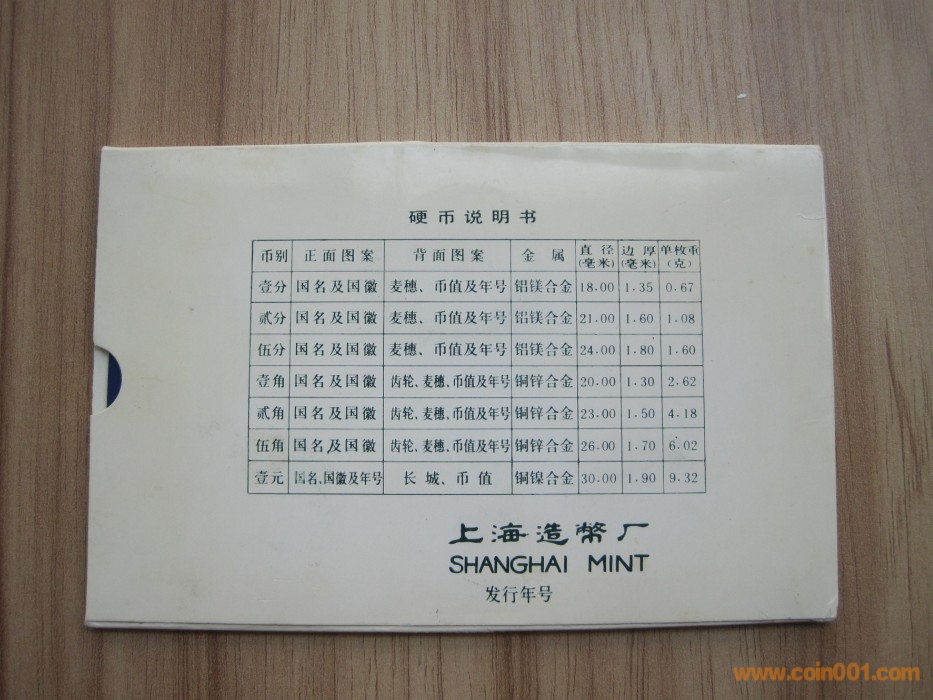 硬币说明书
币别 正面图案 背面图案 金属 直径(毫米) 边厚(毫米) 单枚重(克)
壹分 国名及国徽 麦穗、币值及年号 铝镁合金 18.00 1.35 0.67
贰分 国名及国徽 麦穗、币值及年号 铝镁合金 21.00 1.60 1.08
伍分 国名及国徽 麦穗、币值及年号 铝镁合金 24.00 1.80 1.60
壹角 国名及国徽 齿轮、麦穗、币值及年号 铜锌合金 20.00 1.30 2.62
贰角 国名及国徽 齿轮、麦穗、币值及年号 铜锌合金 23.00 1.50 4.18
伍角 国名及国徽 齿轮、麦穗、币值及年号 铜锌合金 26.00 1.70 6.02
壹元 国名、国徽及年号 长城、币值 铜镍合金 30.00 1.90 9.32
上海造幣厂
SHANGHAI MINT
发行年号
www.coin001.com